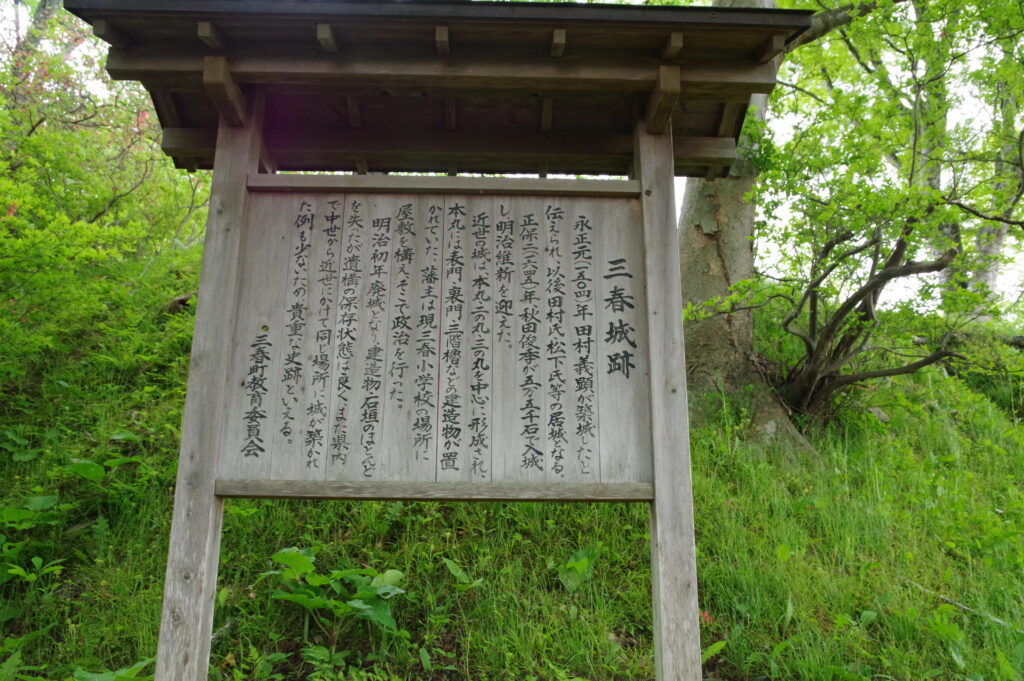 三春城跡
永正元(一五〇四)年田村義顕が築城したと
伝えられ、以後田村氏、松下氏等の居城となる。
正保二(一六四五)年秋田俊季が五万五千石で入城
し、明治維新を迎えた。
近世の城は、本丸、二の丸、三の丸を中心に形成され、
本丸には表門、裏門、三階櫓などの建造物が置
かれていた。藩主は現三春小学校の場所に
屋敷を構え、そこで政治を行った。
明治初年廃城となり、建造物、石垣のほとんど
を失たが遺構の保存状態は良く、また県内
で中世から近世にかけて同じ場所に城が築かれ
た例も少ないため、貴重な史跡といえる。
三春町教育委員会